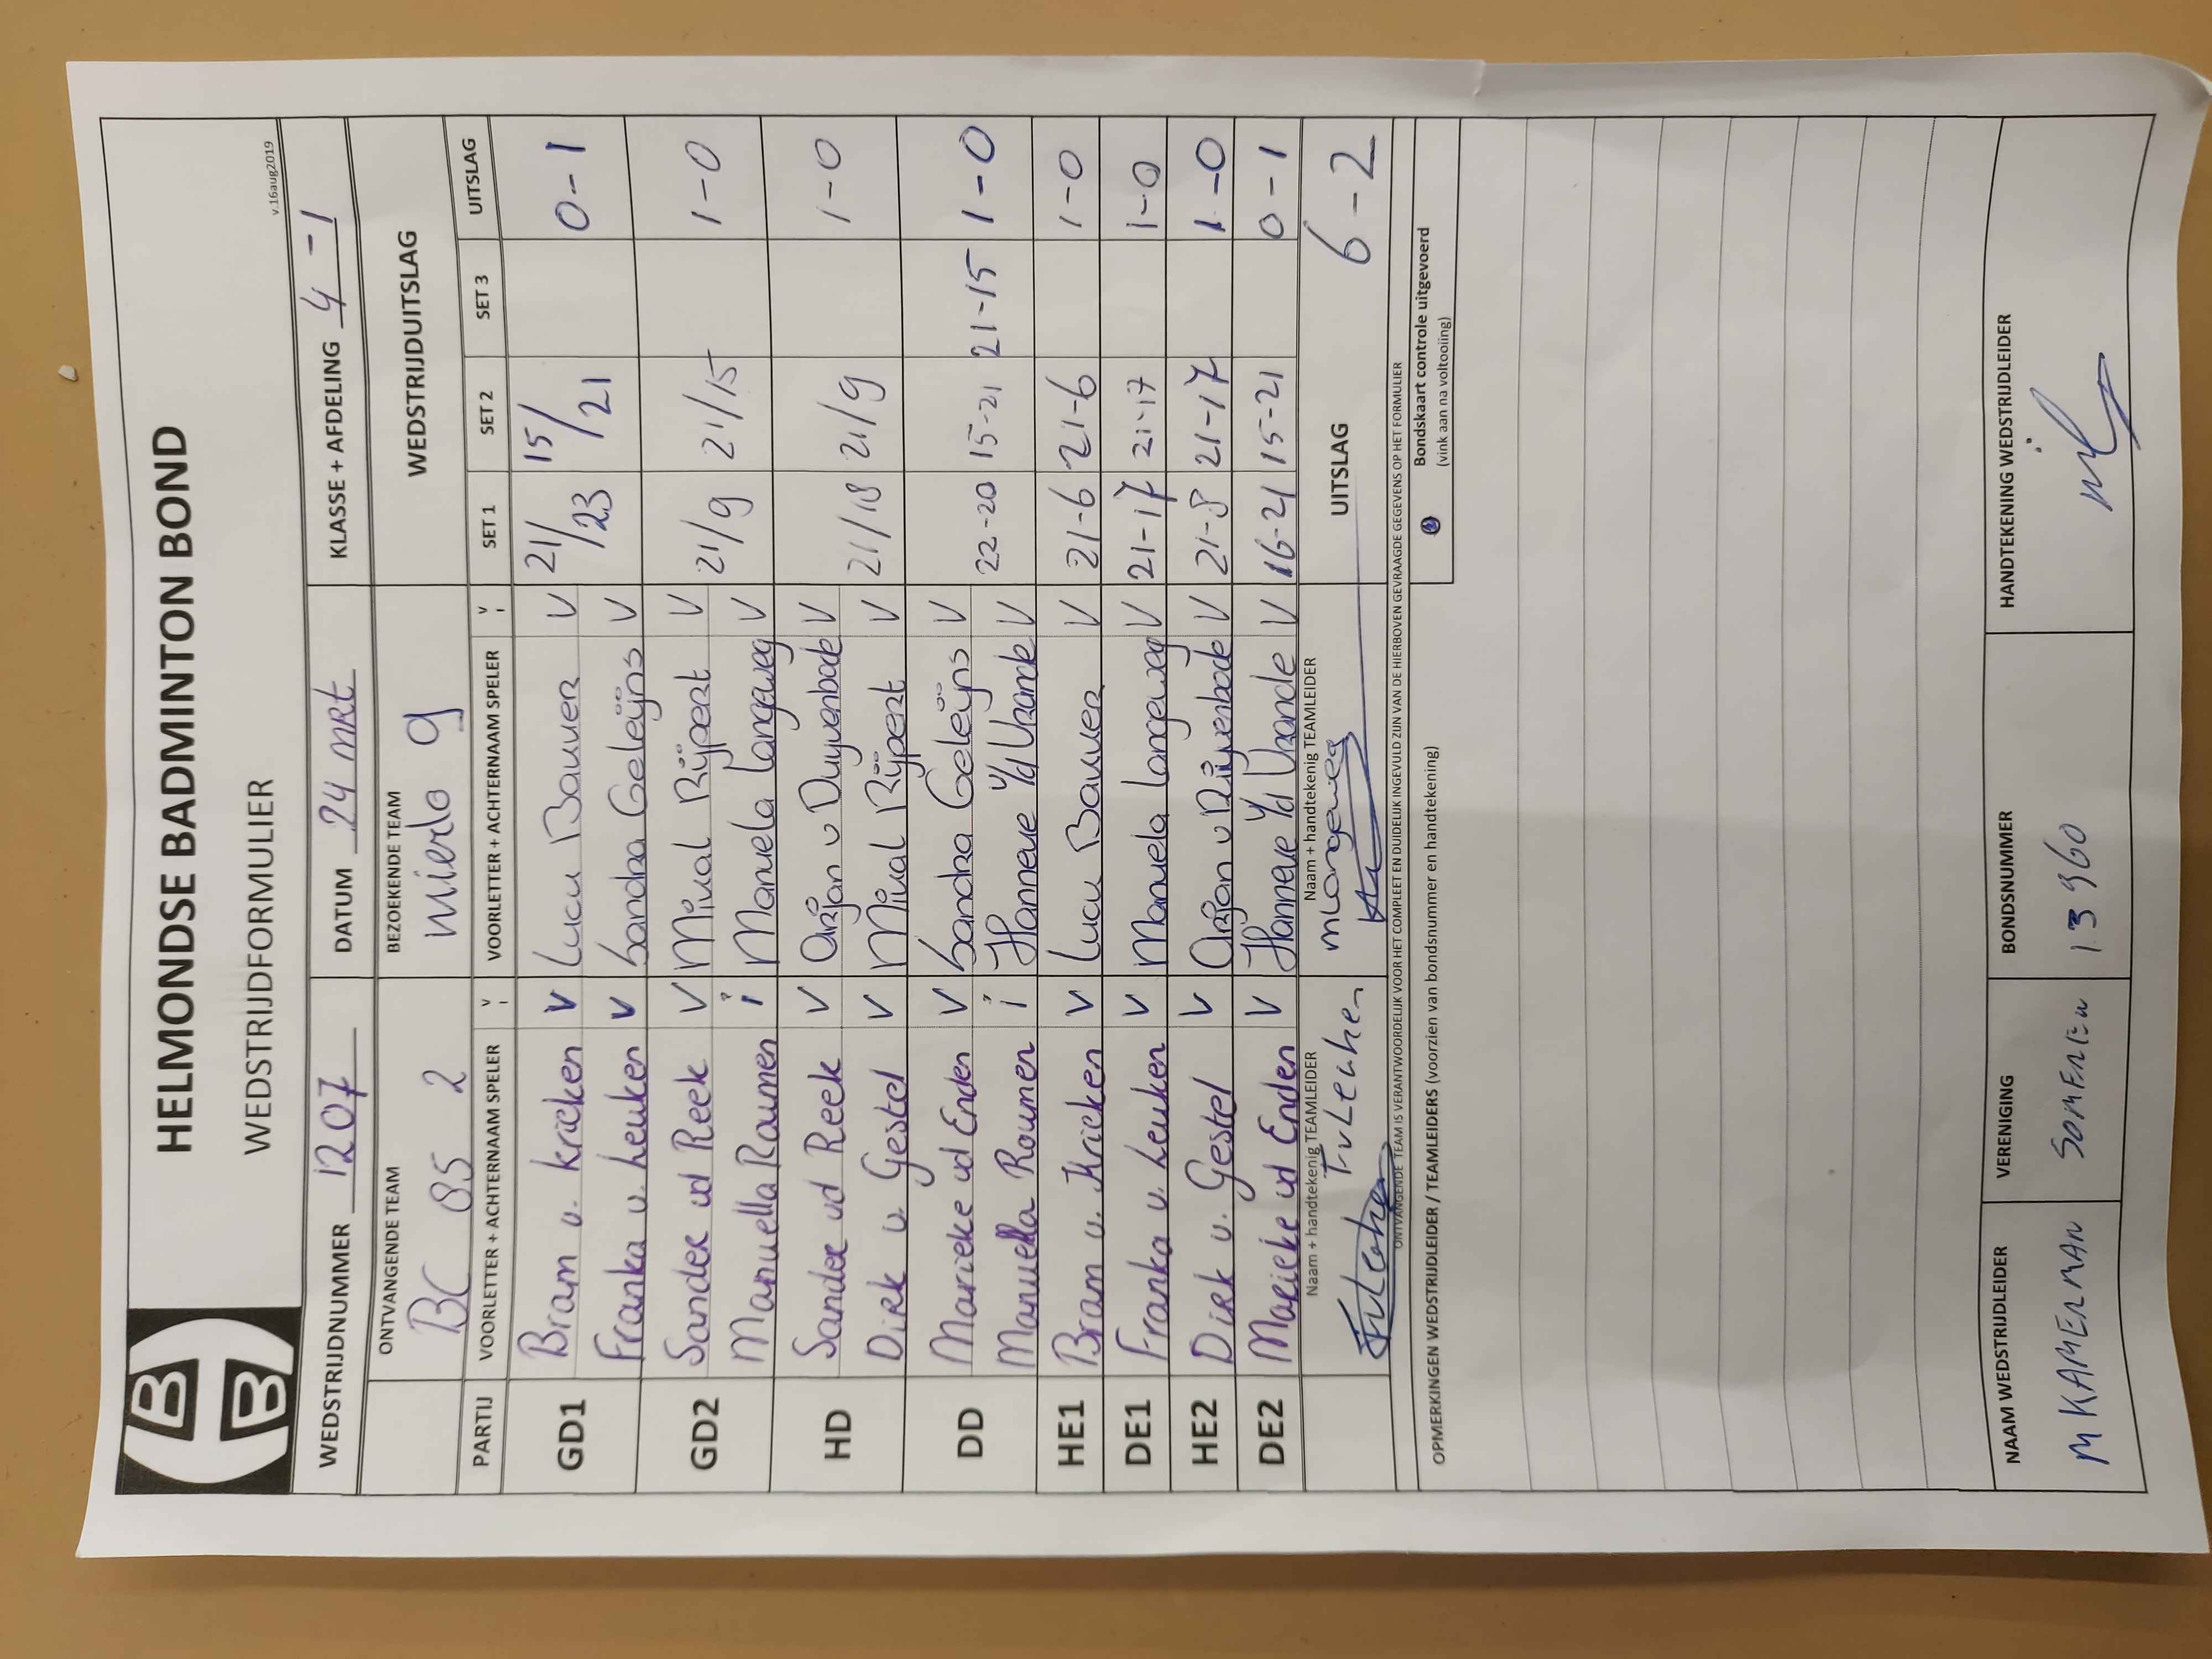 HELMONDSE BADMINTON BOND
WEDSTRIJDFORMULIER
v.16aug2019
WEDSTRIJDNUMMER 1207 DATUM 24 MRt KLASSE + AFDELING 4 - 1
ONTVANGENDE TEAM BEZOEKENDE TEAM WEDSTRIJDUITSLAG
BC 85 2 Mierlo 9
PARTIJ VOORLETTER + ACHTERNAAM SPELER V I VOORLETTER + ACHTERNAAM SPELER V I SET 1 SET 2 SET 3 UITSLAG
GD1 Bram v. Krieken V Lucu Bauwer V 21/23 15/21 0-1
Franka v. Leuken V Sandra Geleijns V
GD2 Sander vd Reek V Mical Rijpert V 21/9 21/15 1-0
Manuella Roumen i Manuela Langeweg V
HD Sander vd Reek V Arjan v Duyvenbode V 21/18 21/9 1-0
Dirk v Gestel V Mical Rijpert V
DD Marieke vd Enden V Sandra Geleijns V 22-20 15-21 21-15 1-0
Manuella Roumen i Hanneke v/d Vrande V
HE1 Bram v. Krieken V Lucu Bauwer V 21-6 21-6 1-0
DE1 Franka v. Leuken V Manuela Langeweg V 21-17 21-17 1-0
HE2 Dirk v. Gestel V Arjan v Duijvenbode V 21-8 21-17 1-0
DE2 Marieke vd Enden V Hanneke v/d Vrande V 16-21 15-21 0-1
Naam + handtekenig TEAMLEIDER Naam + handtekenig TEAMLEIDER UITSLAG 6-2
FvLeuken mlangeweg
ONTVANGENDE TEAM IS VERANTWOORDELIJK VOOR HET COMPLEET EN DUIDELIJK INGEVULD ZIJN VAN DE HIERBOVEN GEVRAAGDE GEGEVENS OP HET FORMULIER
OPMERKINGEN WEDSTRIJDLEIDER / TEAMLEIDERS (voorzien van bondsnummer en handtekening)
Bondskaart controle uitgevoerd
(vink aan na voltooiing)
NAAM WEDSTRIJDLEIDER VERENIGING BONDSNUMMER HANDTEKENING WEDSTRIJDLEIDER
M KAMERMAN SOMEREN 13960